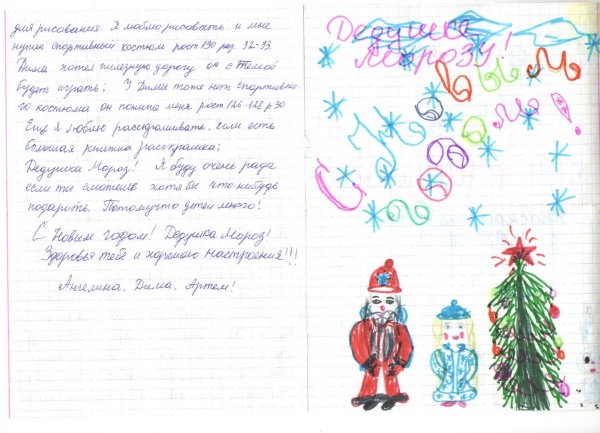 для рисования. Я люблю рисовать и мне
нужен спортивный костюм рост 130 раз 32-33
Дима хотел железную дорогу он с Тёмой
будет играть. У Димы тоже нет спортивно-
го костюма он пониже меня рост 126-128 р 30
Ещё я люблю раскрашивать, если есть
большая книжка раскраска;
Дедушка Мороз! Я буду очень рада
если ты сможешь хотя бы что-нибудь
подарить. Потомучто детей много!
С Новым годом! Дедушка Мороз!
Здоровья тебе и хорошего настроения!!!
Ангелина. Дима. Артем!
Дедушке
Морозу!